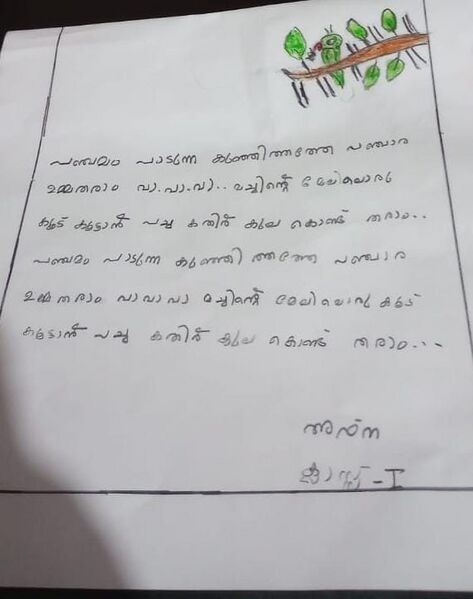 പഞ്ചമം പാടുന്ന കുഞ്ഞിത്തത്തേ പഞ്ചാര
ഉമ്മതരാം വാ.വാ.വാ.. മച്ചിന്റെ മേലിലൊരു
കൂട് കൂട്ടാൻ പച്ച കതിർ കുല കൊണ്ട് തരാം..
പഞ്ചമം പാടുന്ന കുഞ്ഞി ത്തത്തേ പഞ്ചാര
ഉമ്മ തരാം വാ വാ വാ മച്ചിന്റെ മേലിലൊരു കൂട്
കൂടാൻ പച്ച കതിർ കുല കൊണ്ട് തരാം...
അർന
ക്ലാസ്സ് - I